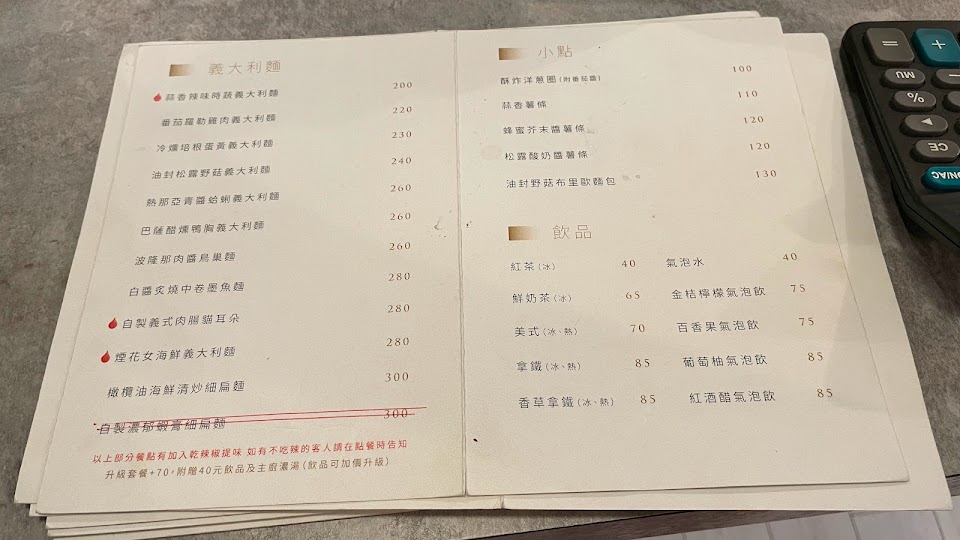 義大利麵
蒜香辣味時蔬義大利麵 200
番茄羅勒雞肉義大利麵 220
冷燻培根蛋黃義大利麵 230
油封松露野菇義大利麵 240
熱那亞青醬蛤蜊義大利麵 260
巴薩醋燻鴨胸義大利麵 260
波隆那肉醬鳥巢麵 260
白醬炙燒中卷墨魚麵 280
自製義式肉腸貓耳朵 280
煙花女海鮮義大利麵 280
橄欖油海鮮清炒細扁麵 300
自製濃郁蝦膏細扁麵 300
以上部分餐點有加入乾辣椒提味 如有不吃辣的客人請在點餐時告知
升級套餐+70，附贈40元飲品及主廚濃湯(飲品可加價升級)
小點
酥炸洋蔥圈(附番茄醬) 100
蒜香薯條 110
蜂蜜芥末醬薯條 120
松露酸奶醬薯條 120
油封野菇布里歐麵包 130
飲品
紅茶(冰) 40 氣泡水 40
鮮奶茶(冰) 65 金桔檸檬氣泡飲 75
美式(冰、熱) 70 百香果氣泡飲 75
拿鐵(冰、熱) 85 葡萄柚氣泡飲 85
香草拿鐵(冰、熱) 85 紅酒醋氣泡飲 85
=
+
MU
%
▶
CE
ON/AC